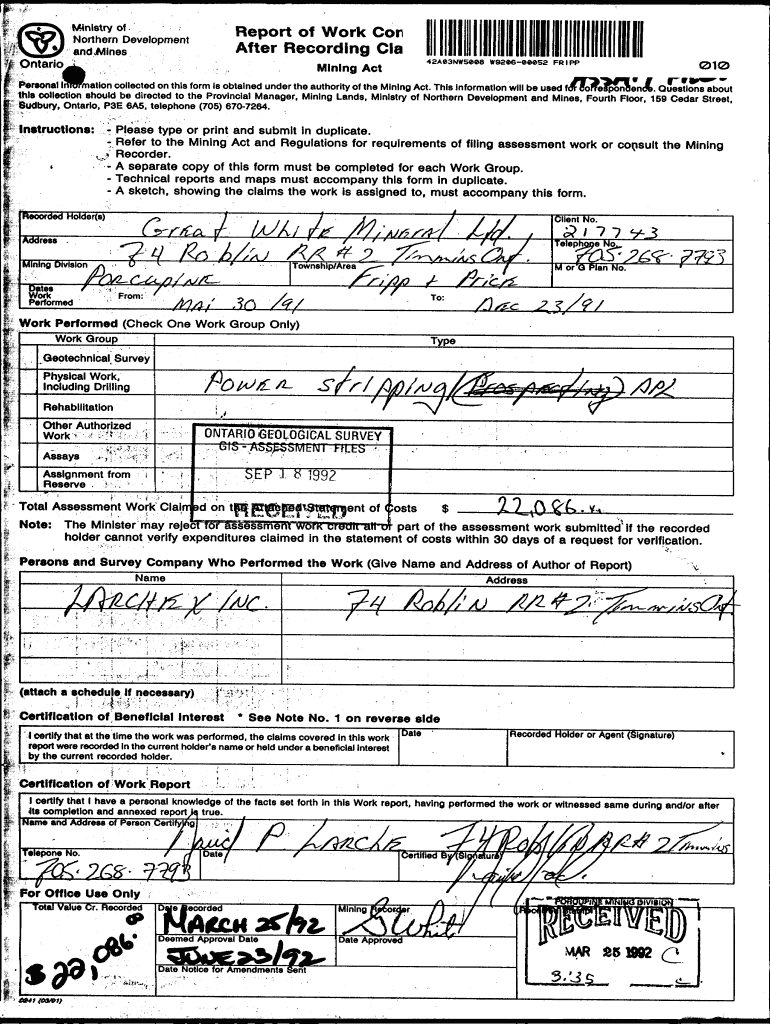 Ministry of
Northern Development
and Mines
Ontario
Report of Work Con
After Recording Cla
Mining Act
42A03NW5008 W9206-00052 FRIPP
010
Personal information collected on this form is obtained under the authority of the Mining Act. This information will be used for correspondence. Questions about
this collection should be directed to the Provincial Manager, Mining Lands, Ministry of Northern Development and Mines, Fourth Floor, 159 Cedar Street,
Sudbury, Ontario, P3E 6A5, telephone (705) 670-7264.
Instructions: - Please type or print and submit in duplicate.
- Refer to the Mining Act and Regulations for requirements of filing assessment work or consult the Mining
Recorder.
- A separate copy of this form must be completed for each Work Group.
- Technical reports and maps must accompany this form in duplicate.
- A sketch, showing the claims the work is assigned to, must accompany this form.
Recorded Holder(s)
Great White Mineral Ltd.
Client No.
217743
Address
74 Roblin RR#2 Timmins Ont.
Telephone No.
705-268-7793
Mining Division
Porcupine
Township/Area
Fripp + Price
M or G Plan No.
Dates
Work
Performed
From:
Mai 30/91
To:
Dec 23/91
Work Performed (Check One Work Group Only)
Work Group
Type
Geotechnical Survey
Physical Work,
Including Drilling
Power stripping
Rehabilitation
Other Authorized
Work
Assays
Assignment from
Reserve
ONTARIO GEOLOGICAL SURVEY
GIS - ASSESSMENT FILES
SEP 18 1992
RECEIVED
Total Assessment Work Claimed on the Attached Statement of Costs $ 22,086.
Note: The Minister may reject for assessment work credit all or part of the assessment work submitted if the recorded
holder cannot verify expenditures claimed in the statement of costs within 30 days of a request for verification.
Persons and Survey Company Who Performed the Work (Give Name and Address of Author of Report)
Name
Address
Larchex Inc.
74 Roblin RR#2 Timmins Ont.
(attach a schedule if necessary)
Certification of Beneficial Interest * See Note No. 1 on reverse side
I certify that at the time the work was performed, the claims covered in this work
report were recorded in the current holder's name or held under a beneficial interest
by the current recorded holder.
Date
Recorded Holder or Agent (Signature)
Certification of Work Report
I certify that I have a personal knowledge of the facts set forth in this Work report, having performed the work or witnessed same during and/or after
its completion and annexed report is true.
Name and Address of Person Certifying
P Larche 74 Roblin RR#2 Timmins
Telepone No.
705-268-7793
Date
Certified By (Signature)
For Office Use Only
Total Value Cr. Recorded
$22,086.00
Date Recorded
March 25/92
Mining Recorder
S White
Deemed Approval Date
June 23/92
Date Approved
Date Notice for Amendments Sent
PORCUPINE MINING DIVISION
RECEIVED
MAR 25 1992
3:35
0241 (03/91)